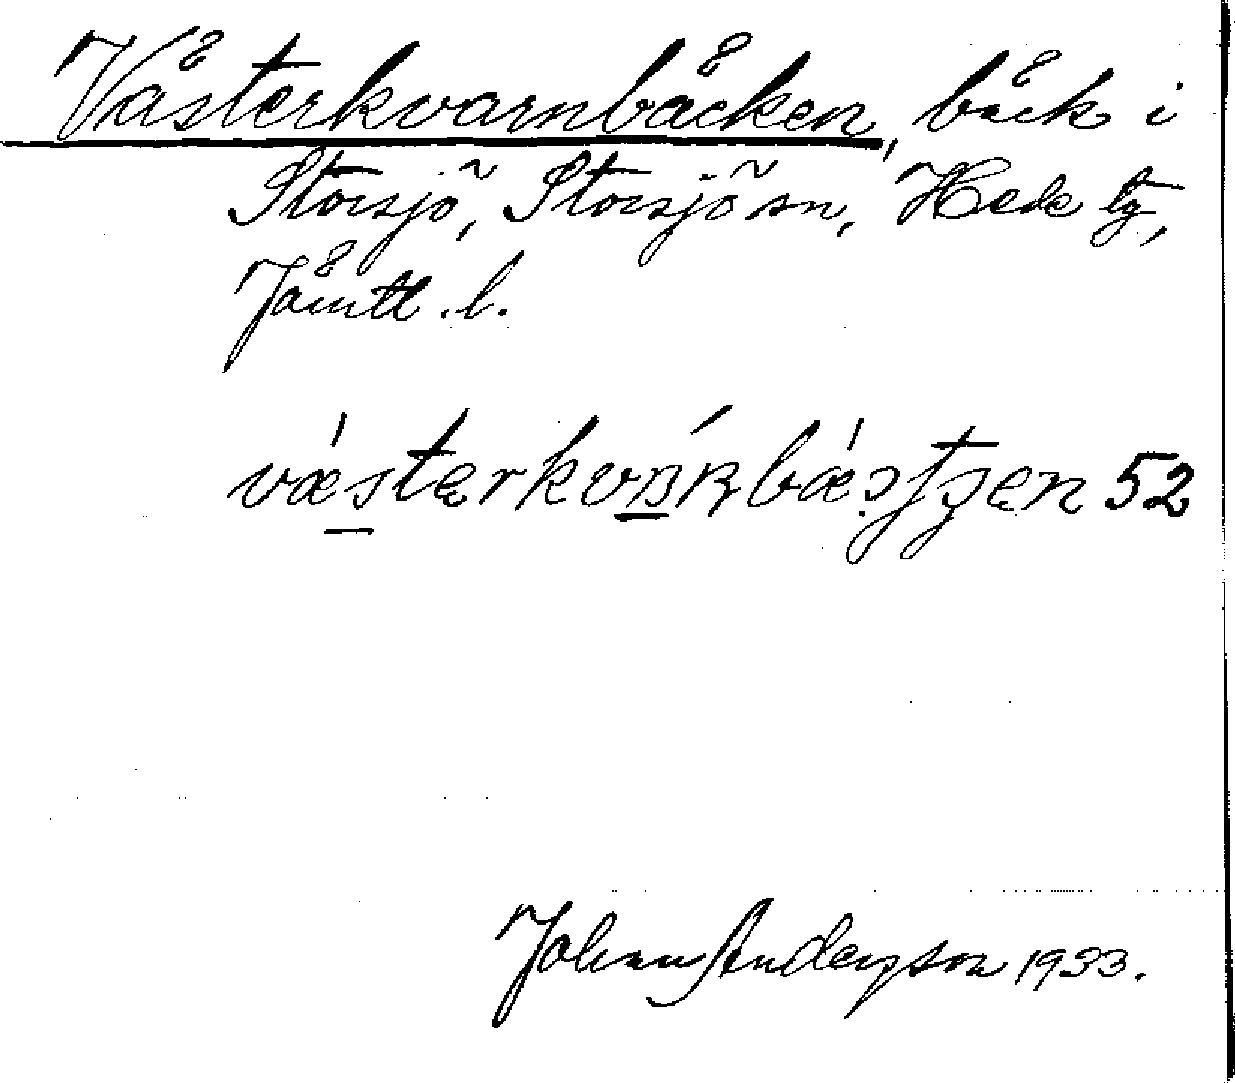 Västerkvarnbäcken, bäck i
Storsjö, Storsjö sn, Hede tg,
Jämtl. l.
52
Johan Anderson 1933.